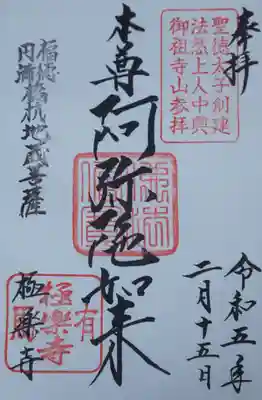 奉拝
聖徳太子創建
法然上人中興
御祖寺山参拝
本尊阿弥陀如来
福徳
円満
地蔵菩薩
極楽寺
極楽寺
有
令和五年
二月十五日